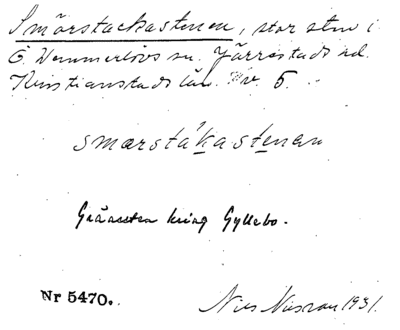 Smörstackastenen, stor sten i
Ö. Vemmerlövs sn. Järrestads hd.
Kristianstads län. 5.
smœrstákastenan
kring Gyllebo.
Nr 5470.
Nils Nilsson 1931.